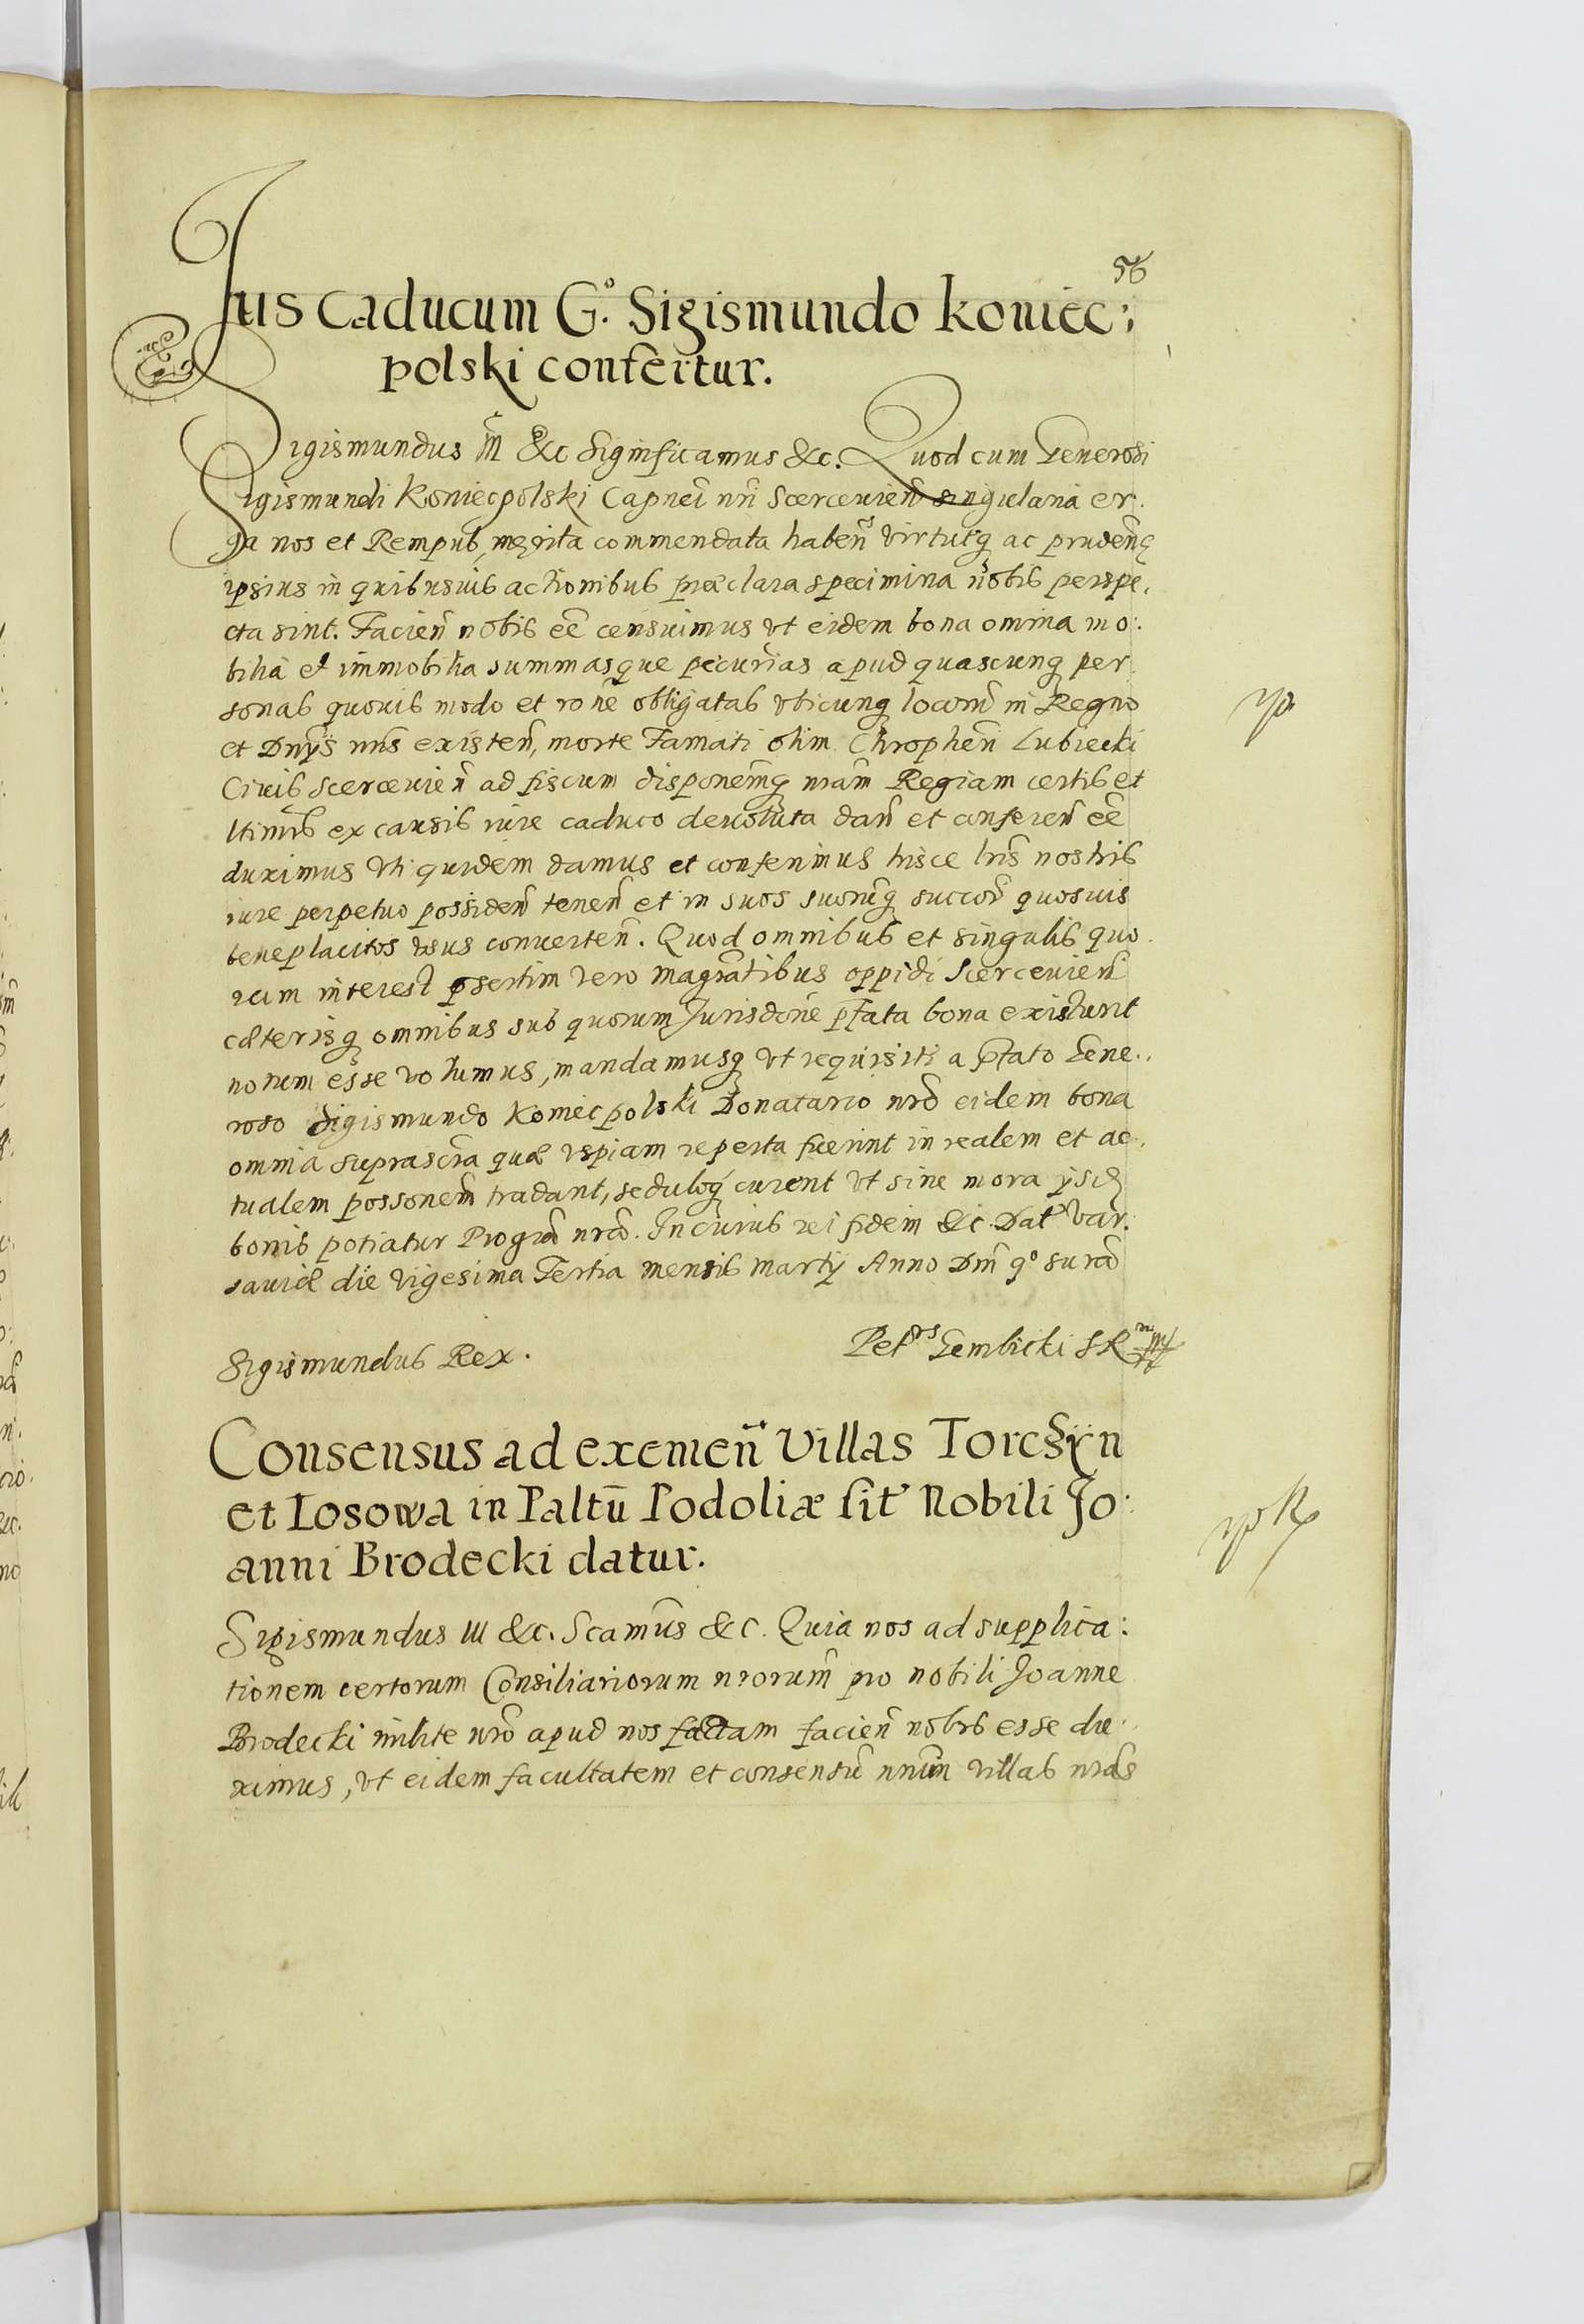 56
Jus Caducum G.º Sigismundo Koniec:
polski confertur.
Sigismundus III &c Significamus &c. Quod cum Generosi
Sigismundi Koniecpolski Capnei nri Scercevień singularia er.
ga nos et Rempub, merita commendata habeñ virtutq ac prudenq
ipsius in quibusuis actionibus præclara specimina nobis perspe,
cta sint. Facień nobis eē censuimus vt eidem bona omnia mo:
bilia et immobilia summasque pecunias apud quascunq per
sonas quouis modo et rone obligatas vbicunq locorū in Regno
et Dnÿs nris existeñ, morte Famati olim Chropheri Lubiecki
Ciuis Scercevień ad fiscum disponemq nram Regiam certis et
ltimis ex causis iure caduco devoluta dañ et confereñ eē
duximus vti quidem damus et conferimus hisce lris nostris
iure perpetuo possideñ teneñ et in suos suorūq succor quosuis
beneplacitos vsus converteñ. Quod omnibus et singulis quo
rum interest psertim vero magratibus oppidi Scercevień
cæterisq omnibus sub quorum Jurisdone pfata bona existunt
notum esse volumus, mandamusq vt requisiti a pfato Gene..
roso Sigismundo Koniecpolski Donatario nro eidem bona
omnia suprascra quæ vspiam reperta fuerint in realem et ac.
tualem possonem tradant, seduloq curent vt sine mora ÿsdē
bonis potiatur Pro gra nra. In cuius rei fidem &c. Dat Var:
saviæ die Vigesima Tertia mensis Martÿ Anno Dm qº supra
Sigismundus Rex.
Petrs Gembicki SR
Consensus ad exemeñ Villas Torcsÿn
et Losowa in Paltū Podoliæ sit Nobili Jo:
anni Brodecki datur.
Sigismundus III &c. Scamus &c. Quia nos ad supplica:
tionem certorum Consiliariorum nrorum pro nobili Joanne
Brodecki milite nro apud nos factam facień nobis esse du.
ximus, vt eidem facultatem et consensū nrum villas nras